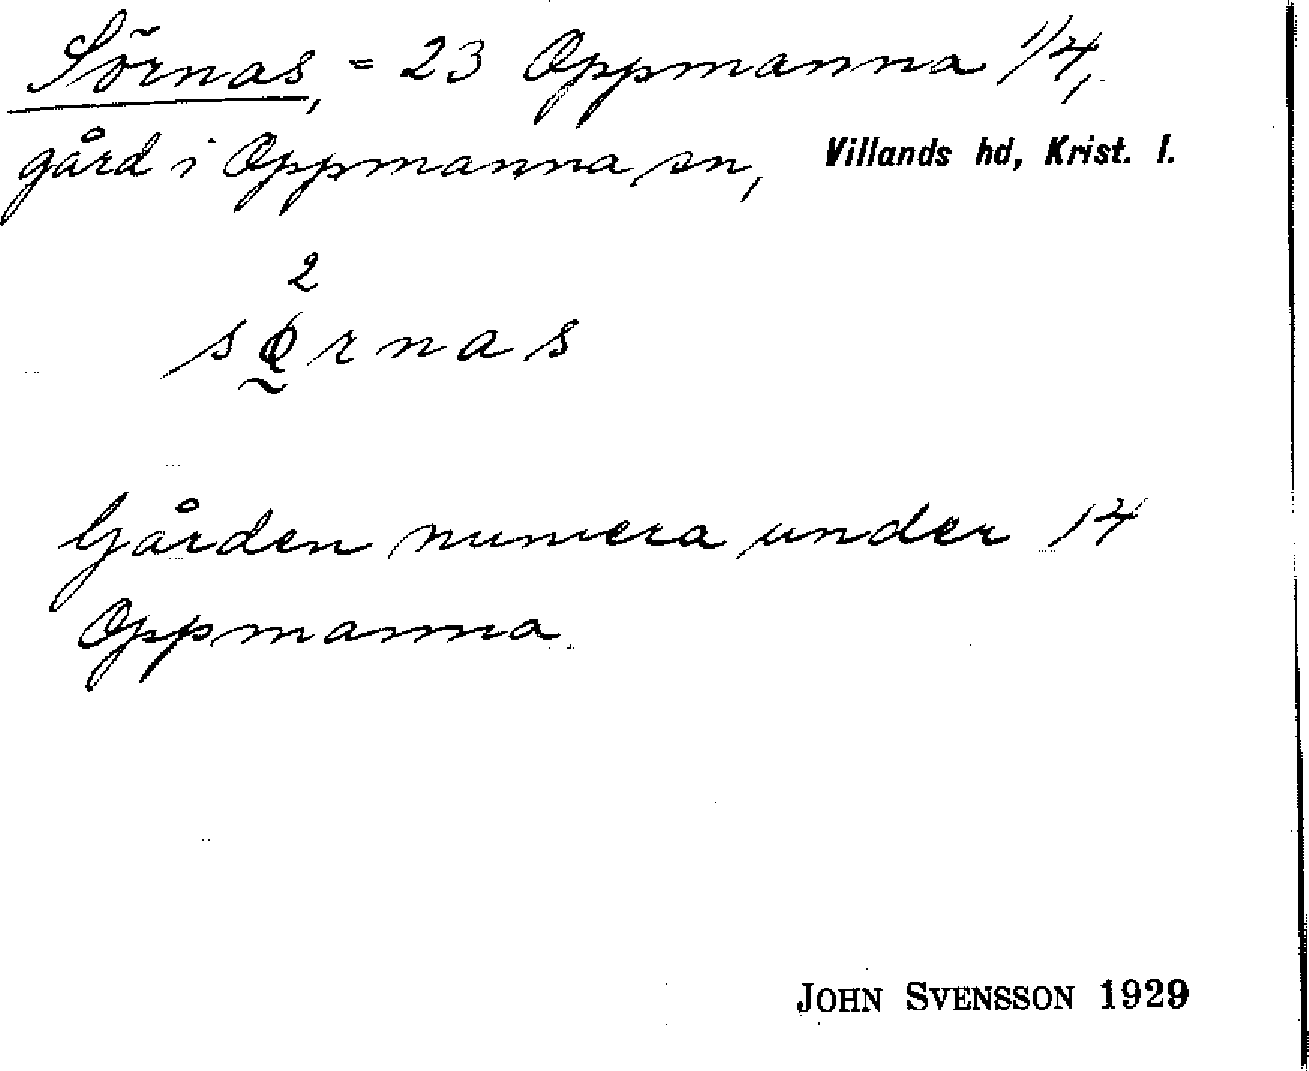 Sörnas, = 23 Oppmanna 1/4,
gård i Oppmanna sn, Villands hd, Krist. l.
2
sørnas
Gården numera under 14
Oppmanna
JOHN SVENSSON 1929